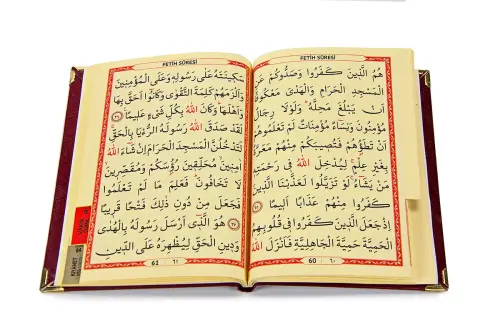 FETİH SÛRESİ
هُمُ الَّذِينَ كَفَرُوا وَصَدُّوكُمْ عَنِ
الْمَسْجِدِ الْحَرَامِ وَالْهَدْىَ مَعْكُوفًا
اَنْ يَبْلُغَ مَحِلَّهُ وَلَوْلَا رِجَالٌ
مُؤْمِنُونَ وَنِسَاءٌ مُؤْمِنَاتٌ لَمْ تَعْلَمُوهُمْ
اَنْ تَطَؤُهُمْ فَتُصِيبَكُمْ مِنْهُمْ مَعَرَّةٌ
بِغَيْرِ عِلْمٍ لِيُدْخِلَ اللّٰهُ فِى رَحْمَتِهِ
مَنْ يَشَاءُ لَوْ تَزَيَّلُوا لَعَذَّبْنَا الَّذِينَ
كَفَرُوا مِنْهُمْ عَذَابًا اَلِيمًا
اِذْ جَعَلَ الَّذِينَ كَفَرُوا فِى قُلُوبِهِمُ
الْحَمِيَّةَ حَمِيَّةَ الْجَاهِلِيَّةِ فَاَنْزَلَ اللّٰهُ
60 ٦٠
FETİH SÛRESİ
سَكِينَتَهُ عَلَى رَسُولِهِ وَعَلَى الْمُؤْمِنِينَ
وَاَلْزَمَهُمْ كَلِمَةَ التَّقْوَى وَكَانُوا اَحَقَّ بِهَا
وَاَهْلَهَا وَكَانَ اللّٰهُ بِكُلِّ شَىْءٍ عَلِيمًا ٢٦
لَقَدْ صَدَقَ اللّٰهُ رَسُولَهُ الرُّءْيَا بِالْحَقِّ
لَتَدْخُلُنَّ الْمَسْجِدَ الْحَرَامَ اِنْ شَاءَ اللّٰهُ
اٰمِنِينَ مُحَلِّقِينَ رُؤُسَكُمْ وَمُقَصِّرِينَ
لَا تَخَافُونَ فَعَلِمَ مَا لَمْ تَعْلَمُوا
فَجَعَلَ مِنْ دُونِ ذٰلِكَ فَتْحًا قَرِيبًا
٢٧ هُوَ الَّذِى اَرْسَلَ رَسُولَهُ بِالْهُدَى
وَدِينِ الْحَقِّ لِيُظْهِرَهُ عَلَى الدِّينِ
61 ٦١